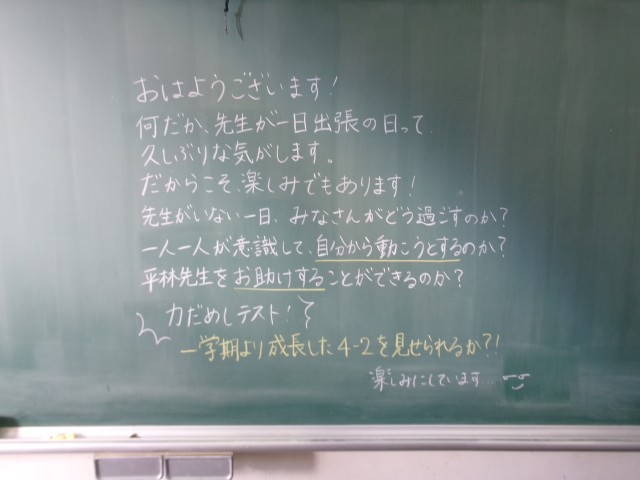 おはようございます!
何だか、先生が一日出張の日って、
久しぶりな気がします。
だからこそ、楽しみでもあります!
先生がいない一日、みなさんがどう過ごすのか?
一人一人が意識して、自分から動こうとするのか?
平林先生をお助けすることができるのか?
力だめしテスト!
一学期より成長した4-2を見せられるか?!
楽しみにしています...